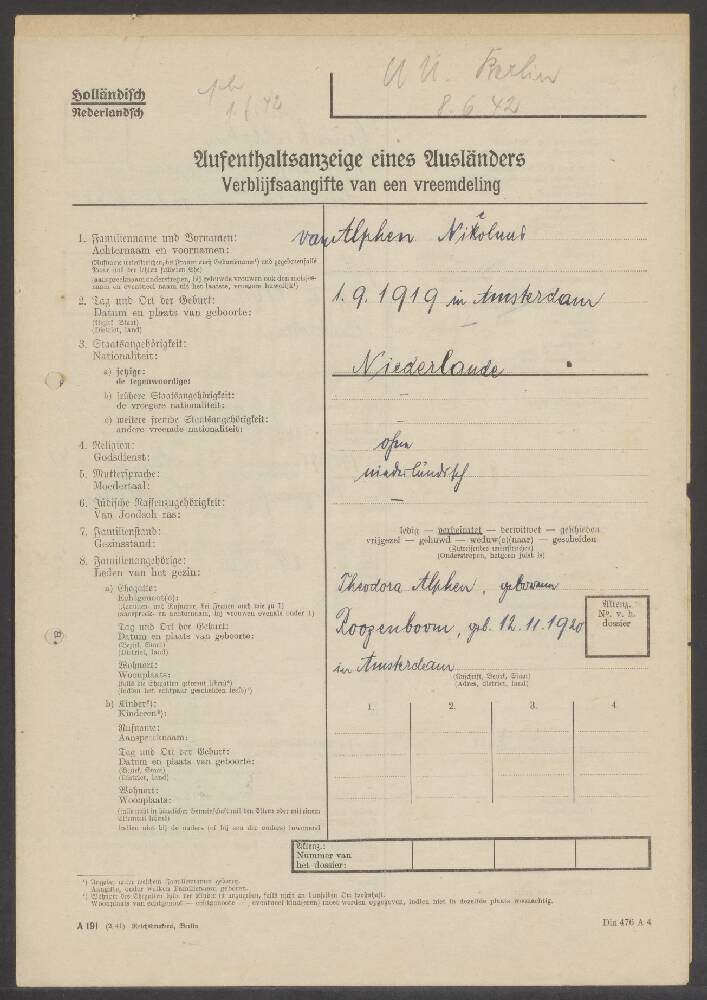 Holländisch
Nederlandsch
1.6.42
Berlin
8.6.42
Aufenthaltsanzeige eines Ausländers
Verblijfsaangifte van een vreemdeling
1. Familienname und Vornamen:
Achternaam en voornamen:
van Alphen Nikolaus
2. Tag und Ort der Geburt:
Datum en plaats van geboorte:
(Bezirk, Staat)
(District, land)
1. 9. 1919 in Amsterdam
3. Staatsangehörigkeit:
Nationaliteit:
a) jetzige:
de tegenwoordige:
Niederlande
b) frühere Staatsangehörigkeit:
de vroegere nationaliteit:
—
c) weitere fremde Staatsangehörigkeit:
andere vreemde nationaliteit:
4. Religion:
Godsdienst:
ohne
5. Muttersprache:
Moedertaal:
niederländisch
6. Jüdische Rassenzugehörigkeit:
Van Joodsch ras:
—
7. Familienstand:
Gezinsstand:
ledig — verheiratet — verwitwet — geschieden
vrijgezel — gehuwd — weduw(e)(naar) — gescheiden
(Zutreffendes unterstreichen)
(Onderstrepen, hetgeen juist is)
8. Familienangehörige:
Leden van het gezin:
a) Ehegatte:
Echtgenoot(e):
Theodora Alphen, geborene
Tag und Ort der Geburt:
Datum en plaats van geboorte:
(Bezirk, Staat)
(District, land)
Roozenboom, geb. 12.11.1920
Aktenz.
No. v. h.
dossier
Wohnort:
Woonplaats:
in Amsterdam
(Anschrift, Bezirk, Staat)
(Adres, district, land)
b) Kinder²):
Kinderen²):
1. 2. 3. 4.
Rufname:
Aanspreeknaam:
Tag und Ort der Geburt:
Datum en plaats van geboorte:
(Bezirk, Staat)
(District, land)
Wohnort:
Woonplaats:
Aktenz.:
Nummer van
het dossier:
¹) Angabe, unter welchem Familiennamen geboren.
Aangifte, onder welken Familienaam geboren.
A 191 (2 41) Reichsdruckerei, Berlin
Din 476 A 4